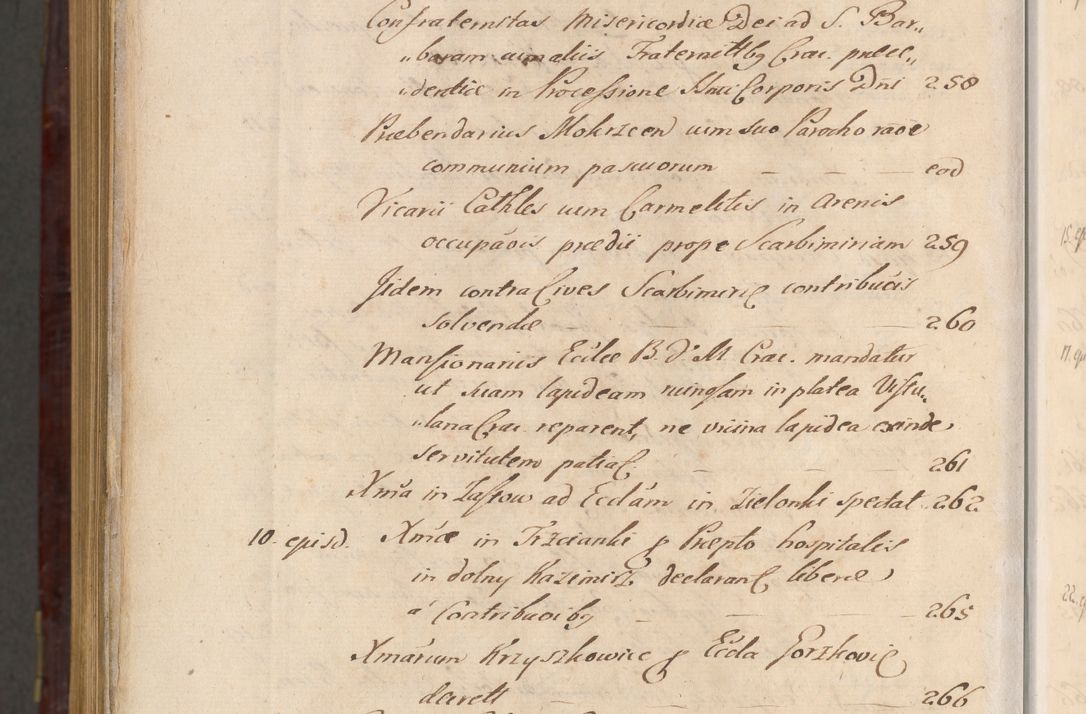 Confraternitas Misericordiæ Dei ad S. Bar„
„baram cum aliis Fraternittbg Crac. præce„
„dentiæ in Processione SSmi Corporis Dni 258
Præbendarius Mokrzcen cum suo Parocho raõe
communium pascuorum — — — eod
Vicarii Cathles cum Carmelitis in Arenis
occupãois prædii prope Scarbimiriam 259
Jidem contra Cives Scarbimirie contribuõis
solvendæ — — 260
Mansionariis Eccllæ B. V. M. Crac. mandatur
ut suam lapideam in platea Vistu„
„lana Crac. reparent, ne vicina lapidea exinde
servitutem patiat. — — 261
Xma in Zastow ad Eccla̅m in Zielonki spectat 262
10. episd. Xmæ in Trzcianki p Præpto hospitalis
in dolny Kazimirz declarant liberæ
a' Contribuoibg — — — 265
Xmarum Krzyszkowice p Eccla Gorzkovie
decrett — — — 266